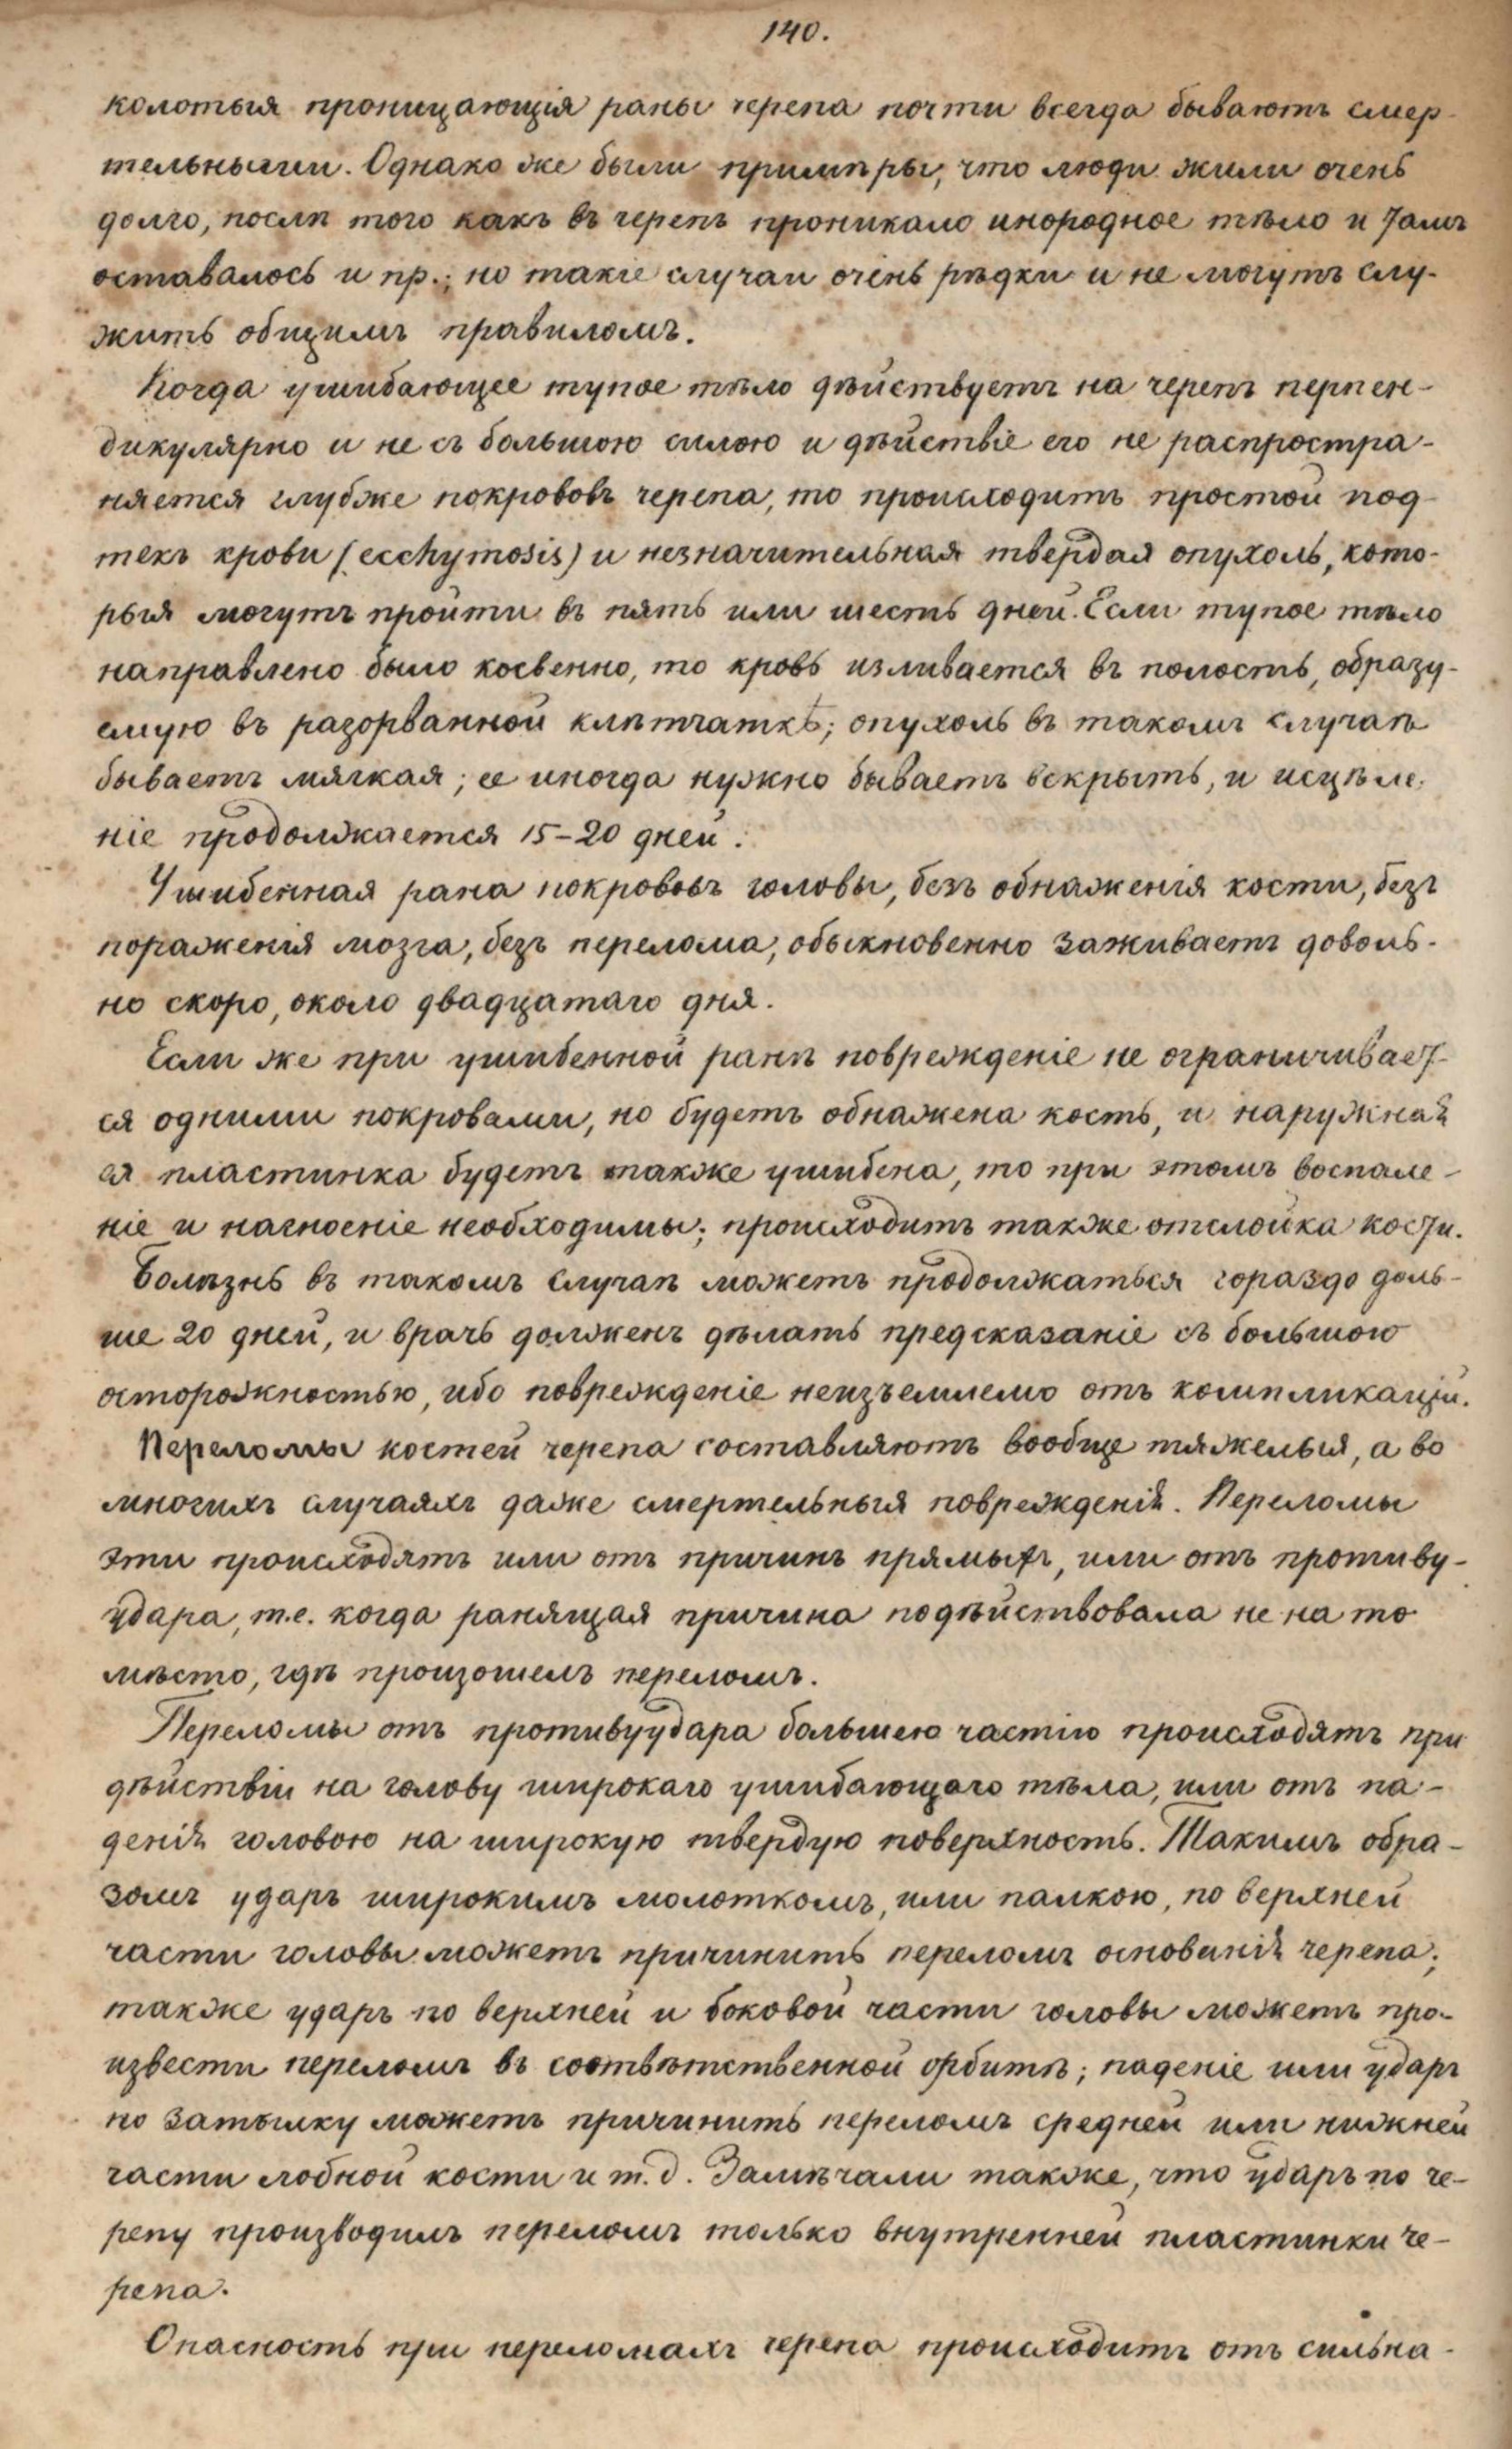 140.
колотыя проницающія раны черепа почти всегда бываютъ смер-
тельными. Однако же были примѣры, что люди жили очень
долго, послѣ того какъ въ черепъ проникало инородное тѣло и тамъ
оставалось и пр.; но такіе случаи очень рѣдки и не могутъ слу-
жить общимъ правиломъ.
Когда ушибающее тупое тѣло дѣйствуетъ на черепъ перпен-
дикулярно и не съ большою силою и дѣйствіе его не распростра-
няется глубже покрововъ черепа, то происходитъ простой под-
текъ крови (ecchymosis) и незначительная твердая опухоль, кото-
рыя могутъ пройти въ пять или шесть дней. Если тупое тѣло
направлено было косвенно, то кровь изливается въ полость, образу-
емую въ разорванной клѣтчаткѣ; опухоль въ такомъ случаѣ
бываетъ мягкая; ее иногда нужно бываетъ вскрыть, и исцѣле-
ніе продолжается 15-20 дней.
Ушибенная рана покрововъ головы, безъ обнаженія кости, безъ
пораженія мозга, безъ перелома, обыкновенно заживаетъ доволь-
но скоро, около двадцатаго дня.
Если же при ушибенной ранѣ поврежденіе не ограничивает-
ся одними покровами, но будетъ обнажена кость, и наружная
ея пластинка будетъ также ушибена, то при этомъ воспале-
ніе и нагноеніе необходимы; происходитъ также отслойка кости.
Болѣзнь въ такомъ случаѣ можетъ продолжаться гораздо доль-
ше 20 дней, и врачъ долженъ дѣлать предсказаніе съ большою
осторожностью, ибо поврежденіе неизъемлемо отъ компликацій.
Переломы костей черепа составляютъ вообще тяжелыя, а во
многихъ случаяхъ даже смертельныя поврежденія. Переломы
эти происходятъ или отъ причинъ прямыхъ, или отъ противу-
удара, т.е. когда ранящая причина подѣйствовала не на то
мѣсто, гдѣ произошелъ переломъ.
Переломы отъ противуудара большею частію происходятъ при
дѣйствіи на голову широкаго ушибающаго тѣла, или отъ па-
денія головою на широкую твердую поверхность. Такимъ обра-
зомъ ударъ широкимъ молоткомъ, или палкою, по верхней
части головы можетъ причинить переломъ основанія черепа;
также ударъ по верхней и боковой части головы можетъ про-
извести переломъ въ соотвѣтственной орбитѣ; паденіе или ударъ
по затылку можетъ причинить переломъ средней или нижней
части лобной кости и т.д. Замѣчали также, что ударъ по че-
репу производилъ переломъ только внутренней пластинки че-
репа.
Опасность при переломахъ черепа происходитъ отъ сильна-